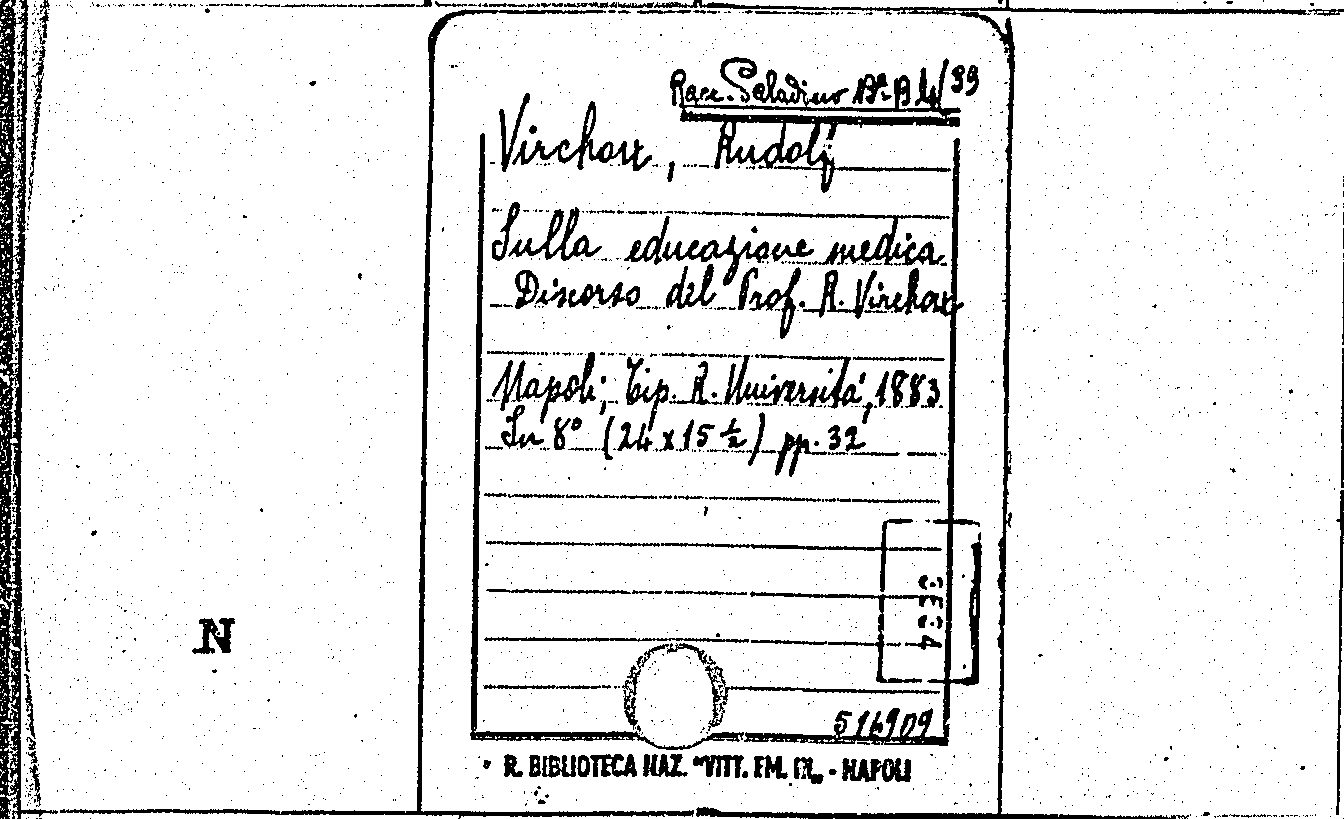 Racc. Saladino Bª B 14/39
Virchow, Rudolf
Sulla educazione medica.
Discorso del Prof. R. Virchow
Napoli; Tip. R. Università, 1883
In 8° (24 x 15 ½) pp. 32
N
R. BIBLIOTECA NAZ. "VITT. EM. III„ - NAPOLI